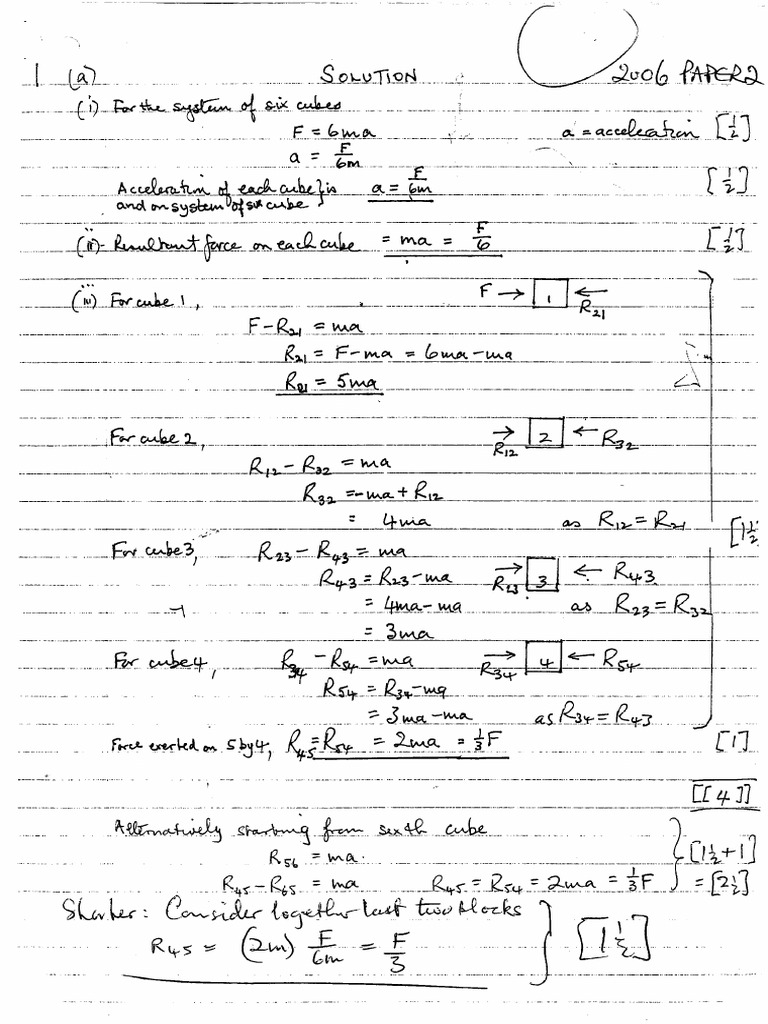 1 (a) SOLUTION 2006 PAPER 2
(i) For the system of six cubes
F = 6ma a = acceleration [½]
a = F/6m
Acceleration of each cube } is a = F/6m [½]
and on system of six cube
(ii) Resultant force on each cube = ma = F/6 [½]
(iii) For cube 1, F → 1 ← R21
F - R21 = ma
R21 = F - ma = 6ma - ma
R21 = 5ma
For cube 2, → R12 2 ← R32
R12 - R32 = ma
R32 = -ma + R12
= 4ma as R12 = R21 [1½
For cube 3, R23 - R43 = ma
R43 = R23 - ma → R23 3 ← R43
= 4ma - ma as R23 = R32
= 3ma
For cube 4, R34 - R54 = ma → R34 4 ← R54
R54 = R34 - ma
= 3ma - ma as R34 = R43
Force exerted on 5 by 4, R45 = R54 = 2ma = ⅓F [1]
[[4]]
Alternatively starting from sixth cube
R56 = ma. [1½ + 1]
R45 - R65 = ma R45 = R54 = 2ma = ⅓F = [2½]
Shorter: Consider together last two blocks
R45 = (2m) F/6m = F/3 [1½]